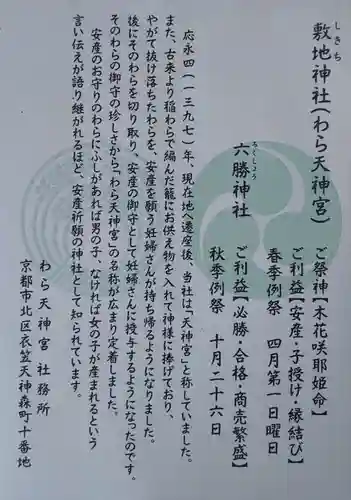 しきち
敷地神社(わら天神宮)
ご祭神【木花咲耶姫命】
ご利益【安産・子授け・縁結び】
春季例祭 四月第一日曜日
ろくしょう
六勝神社
ご利益【必勝・合格・商売繁盛】
秋季例祭 十月二十六日
応永四(一三九七)年、現在地へ遷座後、当社は「天神宮」と称していました。
また、古来より稲わらで編んだ籠にお供え物を入れて神様に捧げており、
やがて抜け落ちたわらを、安産を願う妊婦さんが持ち帰るようになりました。
後にそのわらを切り取り、安産の御守として妊婦さんに授与するようになったのです。
そのわらの御守の珍しさから「わら天神宮」の名称が広まり定着しました。
安産のお守りのわらにふしがあれば男の子、なければ女の子が産まれるという
言い伝えが語り継がれるほど、安産祈願の神社として知られています。
わら天神宮 社務所
京都市北区衣笠天神森町十番地